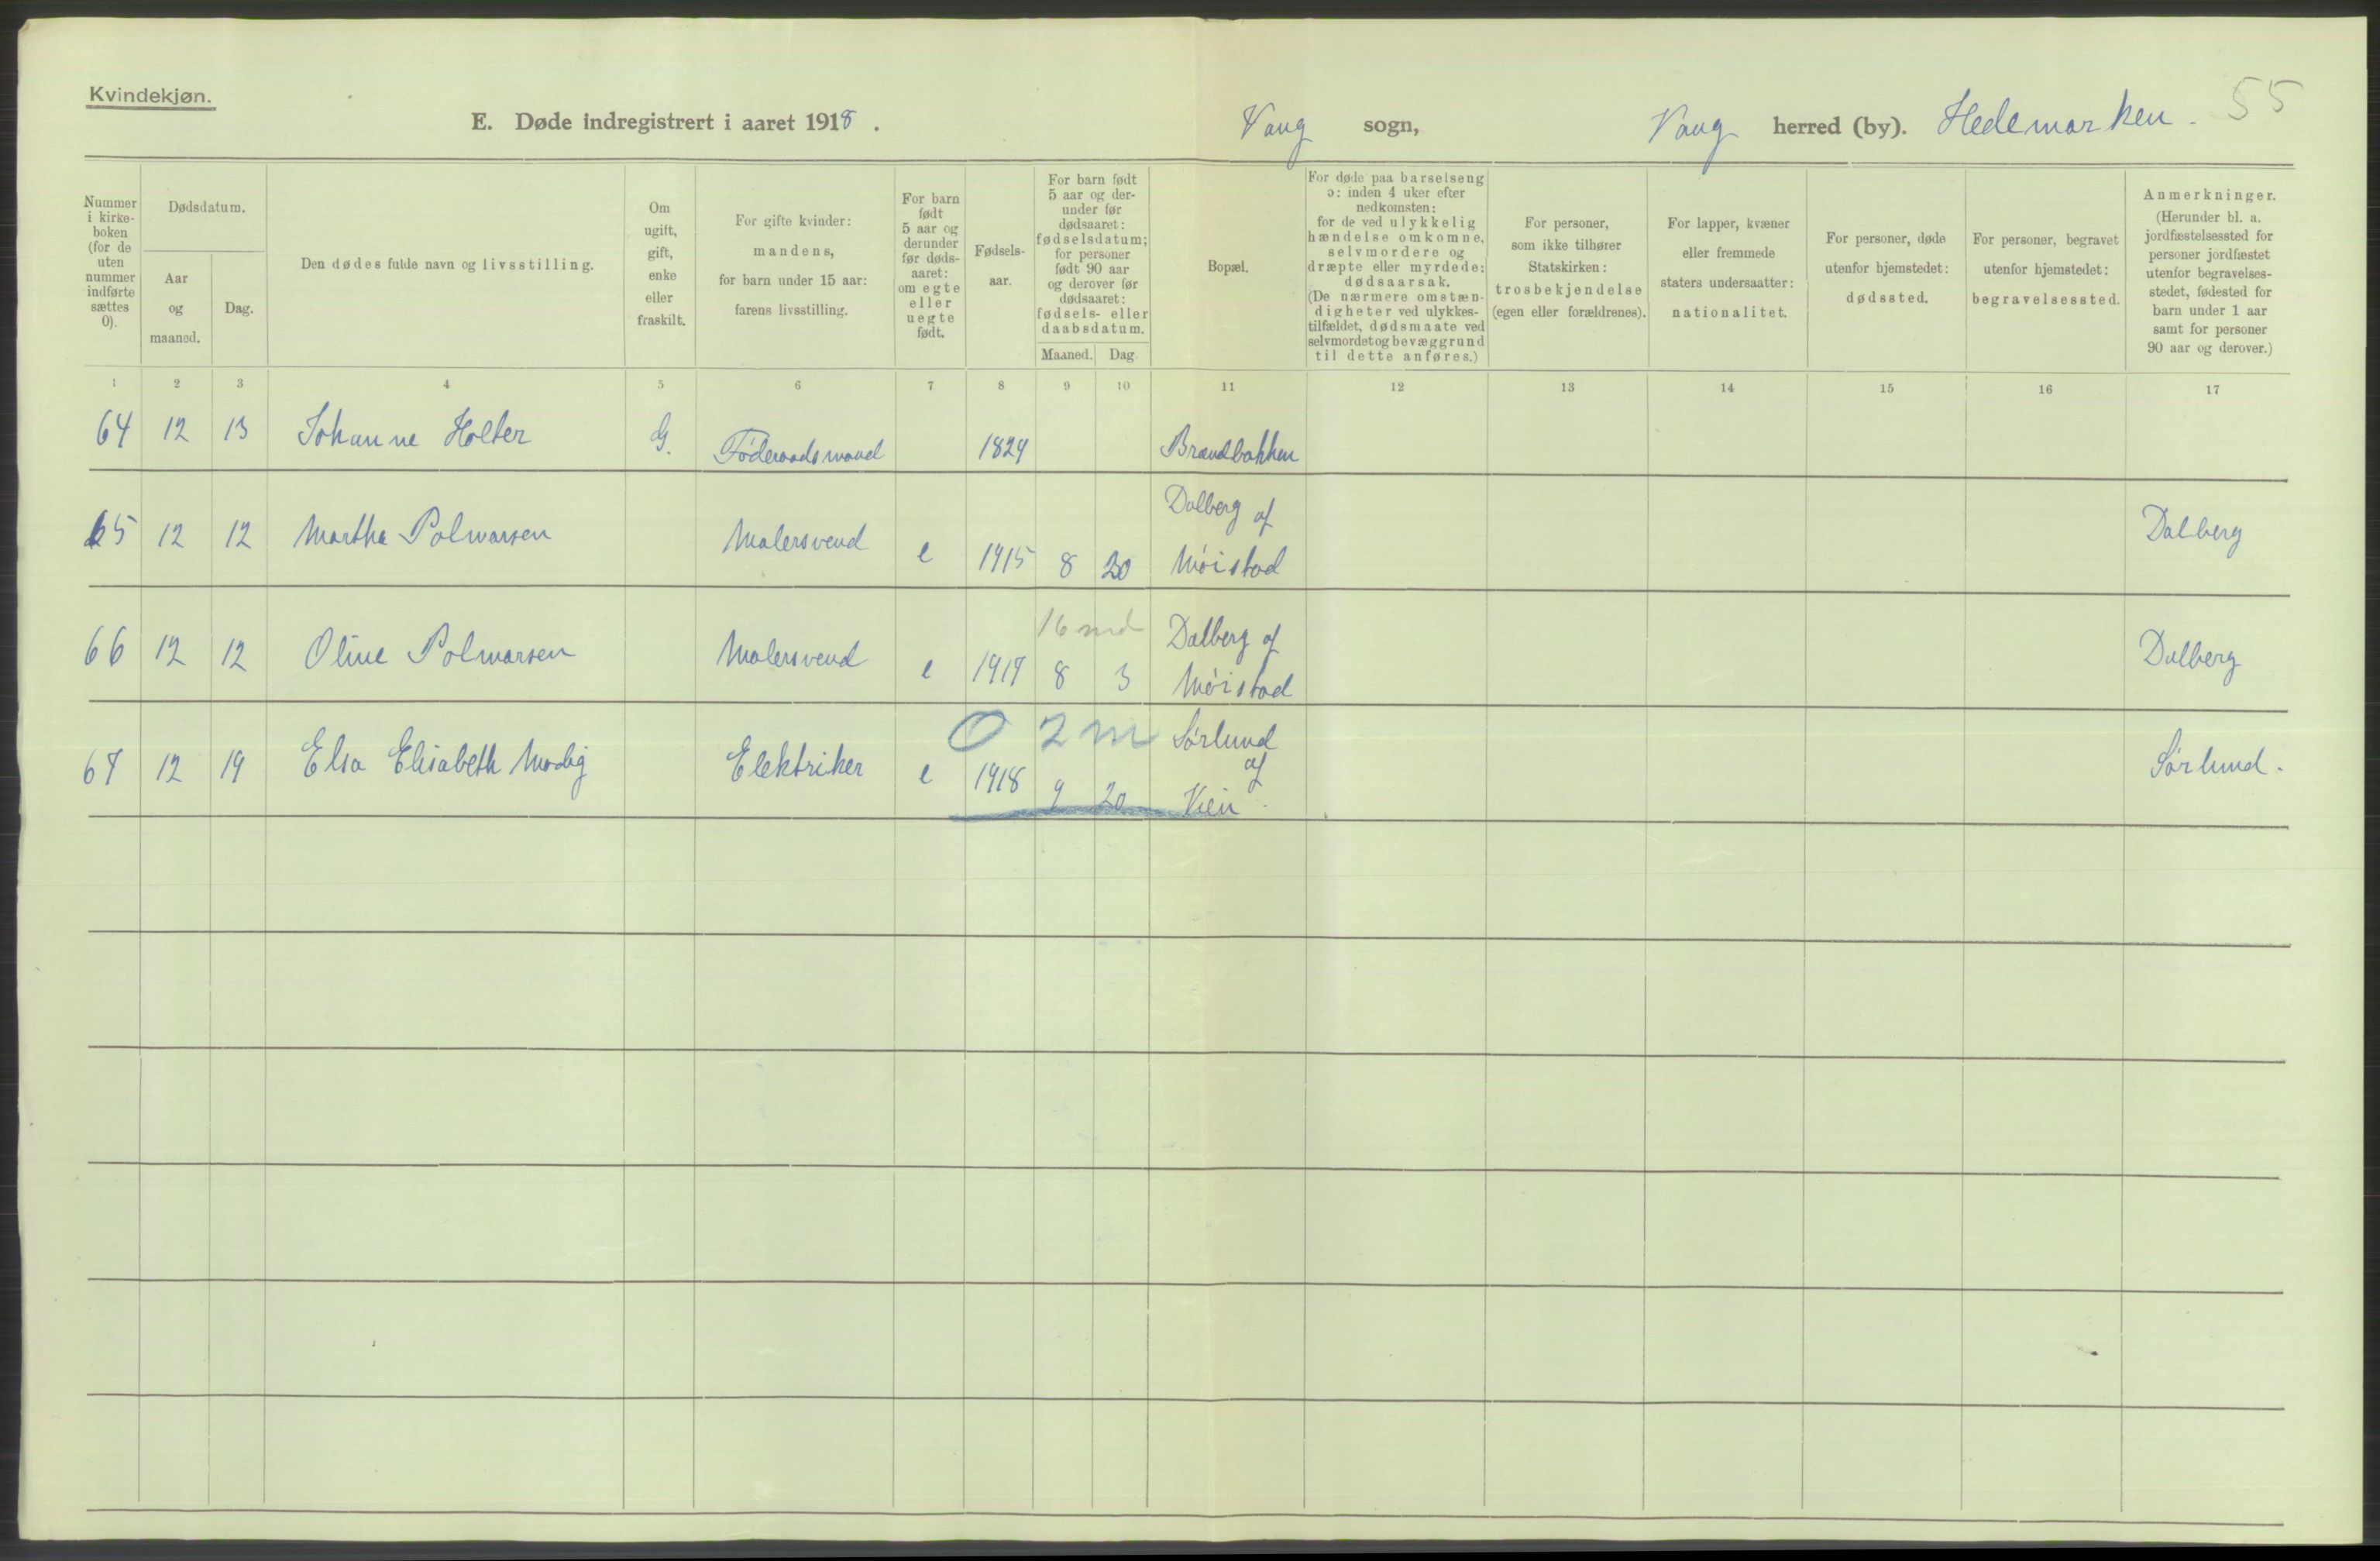 Kvindekjøn.
E. Døde indregistrert i aaret 1918.
Vang sogn,
Vang herred (by). Hedemarken. 55
Nummer i kirke- boken (for de uten nummer indførte sættes 0).
Dødsdatum.
Aar og maaned.
Dag.
Den dødes fulde navn og livsstilling.
Om ugift, gift, enke eller fraskilt.
For gifte kvinder: mandens, for barn under 15 aar: farens livsstilling.
For barn født 5 aar og derunder før døds- aaret: om egte eller uegte født.
Fødsels- aar.
For barn født 5 aar og der- under før dødsaaret: fødselsdatum; for personer født 90 aar og derover før dødsaaret: fødsels- eller daabsdatum.
Maaned. Dag.
Bopæl.
For døde paa barselseng ɔ: inden 4 uker efter nedkomsten: for de ved ulykkelig hændelse omkomne, selvmordere og dræpte eller myrdede: dødsaarsak. (De nærmere omstæn- digheter ved ulykkes- tilfældet, dødsmaate ved selvmordet og bevæggrund til dette anføres.)
For personer, som ikke tilhører Statskirken: trosbekjendelse (egen eller forældrenes).
For lapper, kvæner eller fremmede staters undersaatter: nationalitet.
For personer, døde utenfor hjemstedet: dødssted.
For personer, begravet utenfor hjemstedet: begravelsessted.
Anmerkninger. (Herunder bl. a. jordfæstelsessted for personer jordfæstet utenfor begravelses- stedet, fødested for barn under 1 aar samt for personer 90 aar og derover.)
1 2 3 4 5 6 7 8 9 10 11 12 13 14 15 16 17
64 12 13 Johanne Holter G. Føderaadsmand 1829 Brændbakken
65 12 12 Martha Polmarsen Malersvend e 1915 8 20 Dalberg af Møistad Dalberg
16 md
66 12 12 Oline Polmarsen Malersvend e 1917 8 3 Dalberg af Møistad Dalberg
0 2 m
67 12 19 Elsa Elisabeth Modig Elektriker e 1918 9 20 Sørlund af Vien. Sørlund.